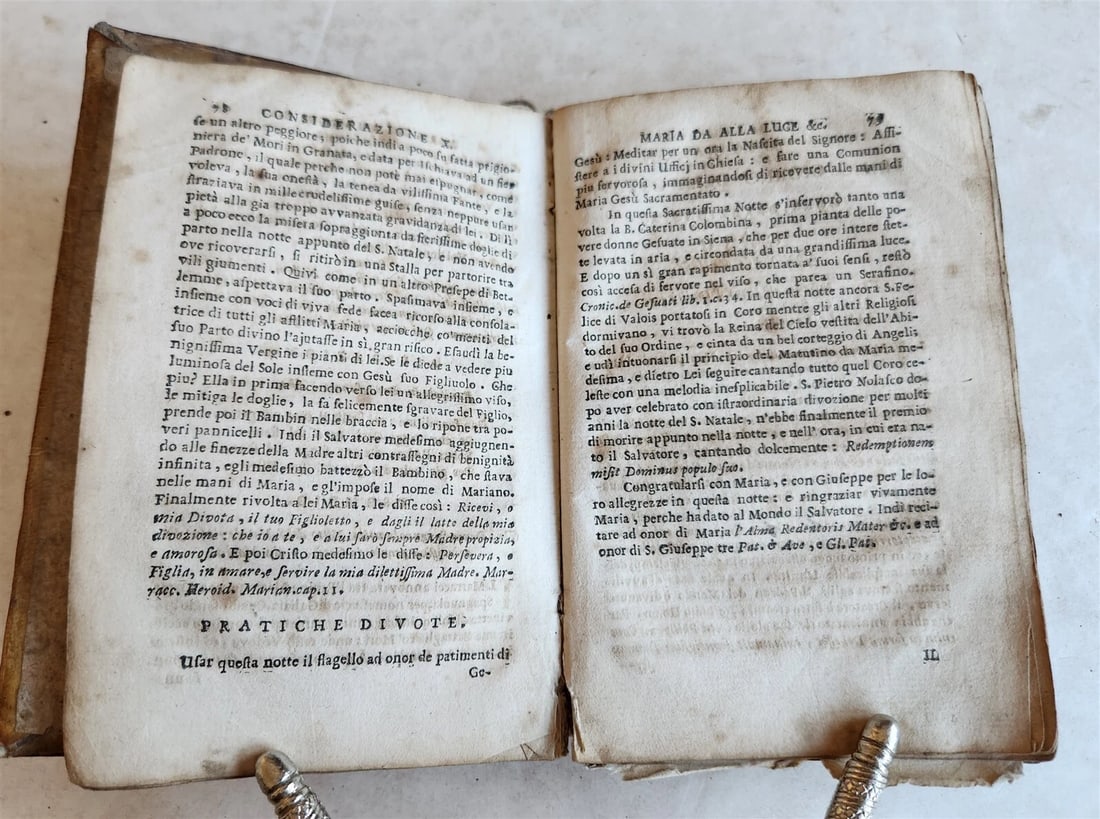 78 CONSIDERAZIONE X.
se un altro Peggiore; poiche indi a poco fu fatta prigio-
niera de' Mori in Granata, e data per Ischiava ad un fier
Padrone, il quale perche non potè mai espugnar, come
voleva, la sua onestà, la tenea da vilissima Fante, e la
straziava in mille crudelissime guise, senza neppure usar
pietà alla gia troppo avvanzata gravidanza di lei. Di lì
a poco ecco la misera sopraggiunta da fierissime doglie di
parto nella notte appunto del S. Natale, e non avendo
ove ricoverarsi, si ritirò in una Stalla per partorire tra
vili giumenti. Quivi come in un altro Presepe di Bet-
lemme, aspettava il suo parto. Spasimava insieme, e
insieme con voci di viva fede facea ricorso alla consola-
trice di tutti gli afflitti Maria, acciocche co' meriti del
suo Parto divino l'ajutasse in sì gran risico. Esaudì la be-
nignissima Vergine i pianti di lei. Se le diede a vedere piu
luminosa del Sole insieme con Gesù suo Figliuolo. Che
piu? Ella in prima facendo verso lei un allegrissimo viso,
le mitiga le doglie, la fa felicemente sgravare del Figlio,
prende poi il Bambin nelle braccia, e lo ripone tra po-
veri pannicelli. Indi il Salvatore medesimo aggiugnen-
do alle finezze della Madre altri contrassegni di benignità
infinita, egli medesimo battezzò il Bambino, che stava
nelle mani di Maria, e gl'impose il nome di Mariano.
Finalmente rivolta a lei Maria, le disse così: Ricevi, o
mia Divota, il tuo Figlioletto, e dagli il latte della mia
divozione: che io a te, e a lui sarò sempre Madre propizia,
e amorosa. E poi Cristo medesimo le disse: Persevera, o
Figlia, in amare, e servire la mia dilettissima Madre. Mar-
racc. Heroid. Marian. cap. 11.
PRATICHE DIVOTE.
Usar questa notte il flagello ad onor de patimenti di
Ge-
MARIA DA ALLA LUCE &c. 79
Gesù: Meditar per un ora la Nascita del Signore: Assi-
stere a i divini Ufficj in Chiesa: e fare una Comunion
piu fervorosa, immaginandosi di ricevere dalle mani di
Maria Gesù Sacramentato.
In questa Sacratissima Notte s'infervorò tanto una
volta la B. Caterina Colombina, prima pianta delle po-
vere donne Gesuate in Siena, che per due ore intere stet-
te levata in aria, e circondata da una grandissima luce.
E dopo un sì gran rapimento tornata a' suoi sensi, restò
così accesa di fervore nel viso, che parea un Serafino.
Cronic. de Gesuati lib. 1. c. 34. In questa notte ancora S. Fe-
lice di Valois portatosi in Coro mentre gli altri Religiosi
dormivano, vi trovò la Reina del Cielo vestita dell'Abi-
to del suo Ordine, e cinta da un bel corteggio di Angeli;
e udì intuonarsi il principio del Matutino da Maria me-
desima, e dietro Lei seguire cantando tutto quel Coro ce-
leste con una melodia inesplicabile. S. Pietro Nolasco do-
po aver celebrato con istraordinaria divozione per molti
anni la notte del S. Natale, n'ebbe finalmente il premio
di morire appunto nella notte, e nell' ora, in cui era na-
to il Salvatore, cantando dolcemente: Redemptionem
misit Dominus populo suo.
Congratularsi con Maria, e con Giuseppe per le lo-
ro allegrezze in questa notte: e ringraziar vivamente
Maria, perche ha dato al Mondo il Salvatore. Indi reci-
tare ad onor di Maria l'Alma Redentoris Mater &c. e ad
onor di S. Giuseppe tre Pat. & Ave, e Gl. Pat.
IL